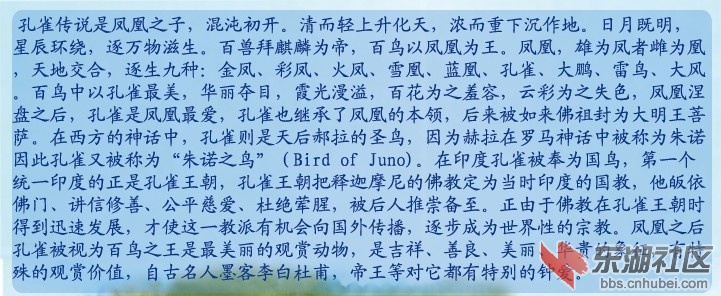 孔雀传说是凤凰之子，混沌初开。清而轻上升化天，浓而重下沉作地。日月既明，
星辰环绕，逐万物滋生。百兽拜麒麟为帝，百鸟以凤凰为王。凤凰，雄为凤者雌为凰
，天地交合，逐生九种：金凤、彩凤、火凤、雪凰、蓝凰、孔雀、大鹏、雷鸟、大风
。百鸟中以孔雀最美，华丽夺目，霞光漫溢，百花为之羞容，云彩为之失色，凤凰涅
盘之后，孔雀是凤凰最爱，孔雀也继承了凤凰的本领，后来被如来佛祖封为大明王菩
萨。在西方的神话中，孔雀则是天后郝拉的圣鸟，因为赫拉在罗马神话中被称为朱诺
因此孔雀又被称为“朱诺之鸟”（Bird of Juno)。在印度孔雀被奉为国鸟，第一个
统一印度的正是孔雀王朝，孔雀王朝把释迦摩尼的佛教定为当时印度的国教，他皈依
佛门、讲信修善、公平慈爱、杜绝荤腥，被后人推崇备至。正由于佛教在孔雀王朝时
得到迅速发展，才使这一教派有机会向国外传播，逐步成为世界性的宗教。凤凰之后
孔雀被视为百鸟之王是最美丽的观赏动物，是吉祥、善良、美丽、华贵的
殊的观赏价值，自古名人墨客李白杜甫，帝王等对它都有特别的钟爱。
东湖社区
bbs.cnhubei.com